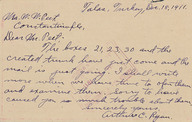 Talas, Turkey, Dec. 18, 1911.
Mr. W. W. Peet
Constantinople,
Dear Mr. Peet:
The boxes 21, 23, 30 and the
crated trunk have just come and the
mail is just going. I shall write
more when we have time to open
and examine them. Sorry to have
caused you so much trouble about them
Sincerely yours,
Arthur C. Ryan.